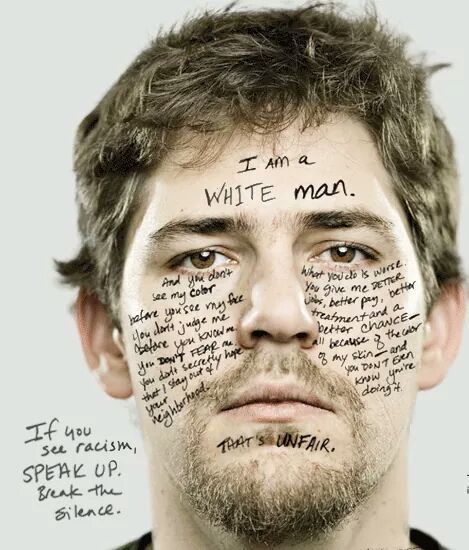 I am a
WHITE man.
And you don't
see my color
before you see my face
You don't judge me
before you know me.
you DON'T FEAR me.
you don't secretly hope
that I stay out of
your
neighborhood.
What you do is worse.
You give me BETTER
jobs, better pay, better
treatment and a
better CHANCE—
all because of the color
of my skin— and
you DON'T EVEN
know you're
doing it.
THAT'S UNFAIR.
If you
see racism,
SPEAK UP.
Break the
silence.